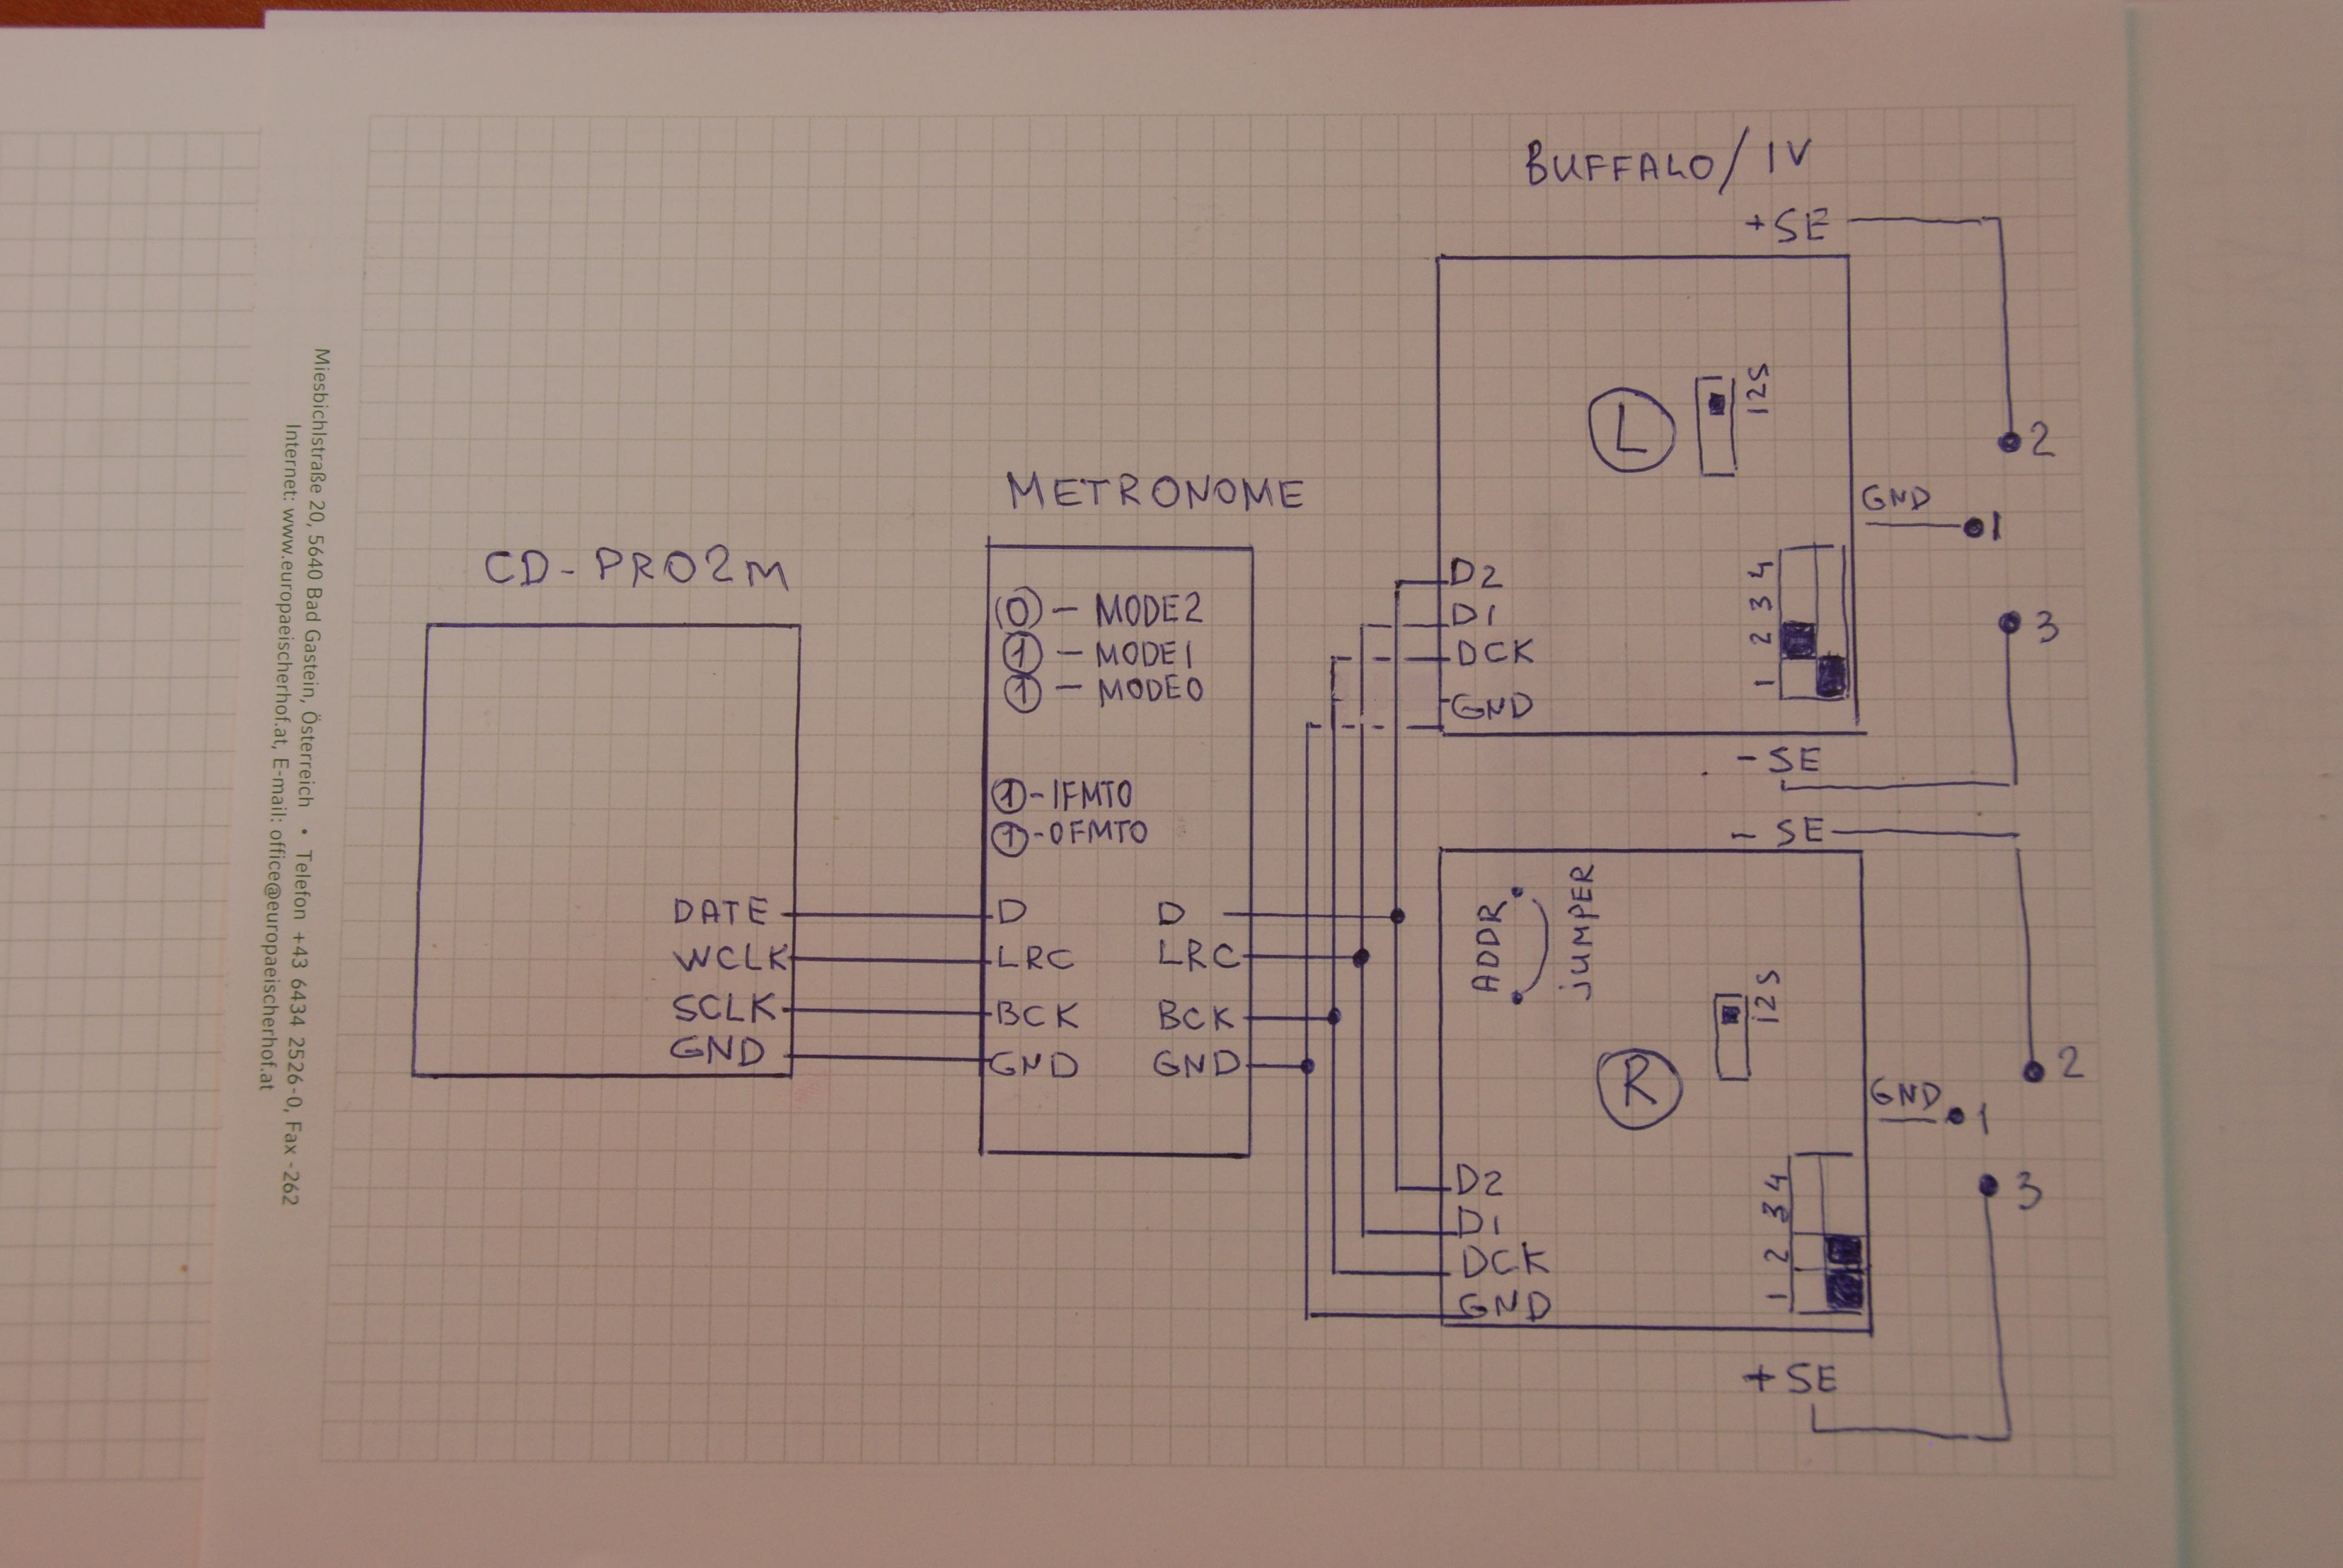 BUFFALO/IV
+SE
L
I2S
2
GND
1
3
D2
D1
DCK
GND
1 2 3 4
-SE
METRONOME
0 - MODE2
1 - MODE1
1 - MODE0
1 - IFMT0
1 - OFMT0
D
LRC
BCK
GND
D
LRC
BCK
GND
CD-PRO2M
DATE
WCLK
SCLK
GND
- SE
ADDR
JUMPER
I2S
R
2
GND
1
3
D2
D1
DCK
GND
1 2 3 4
+SE
Miesbichlstraße 20, 5640 Bad Gastein, Österreich • Telefon +43 6434 2526-0, Fax -262
Internet: www.europaeischerhof.at, E-mail: office@europaeischerhof.at